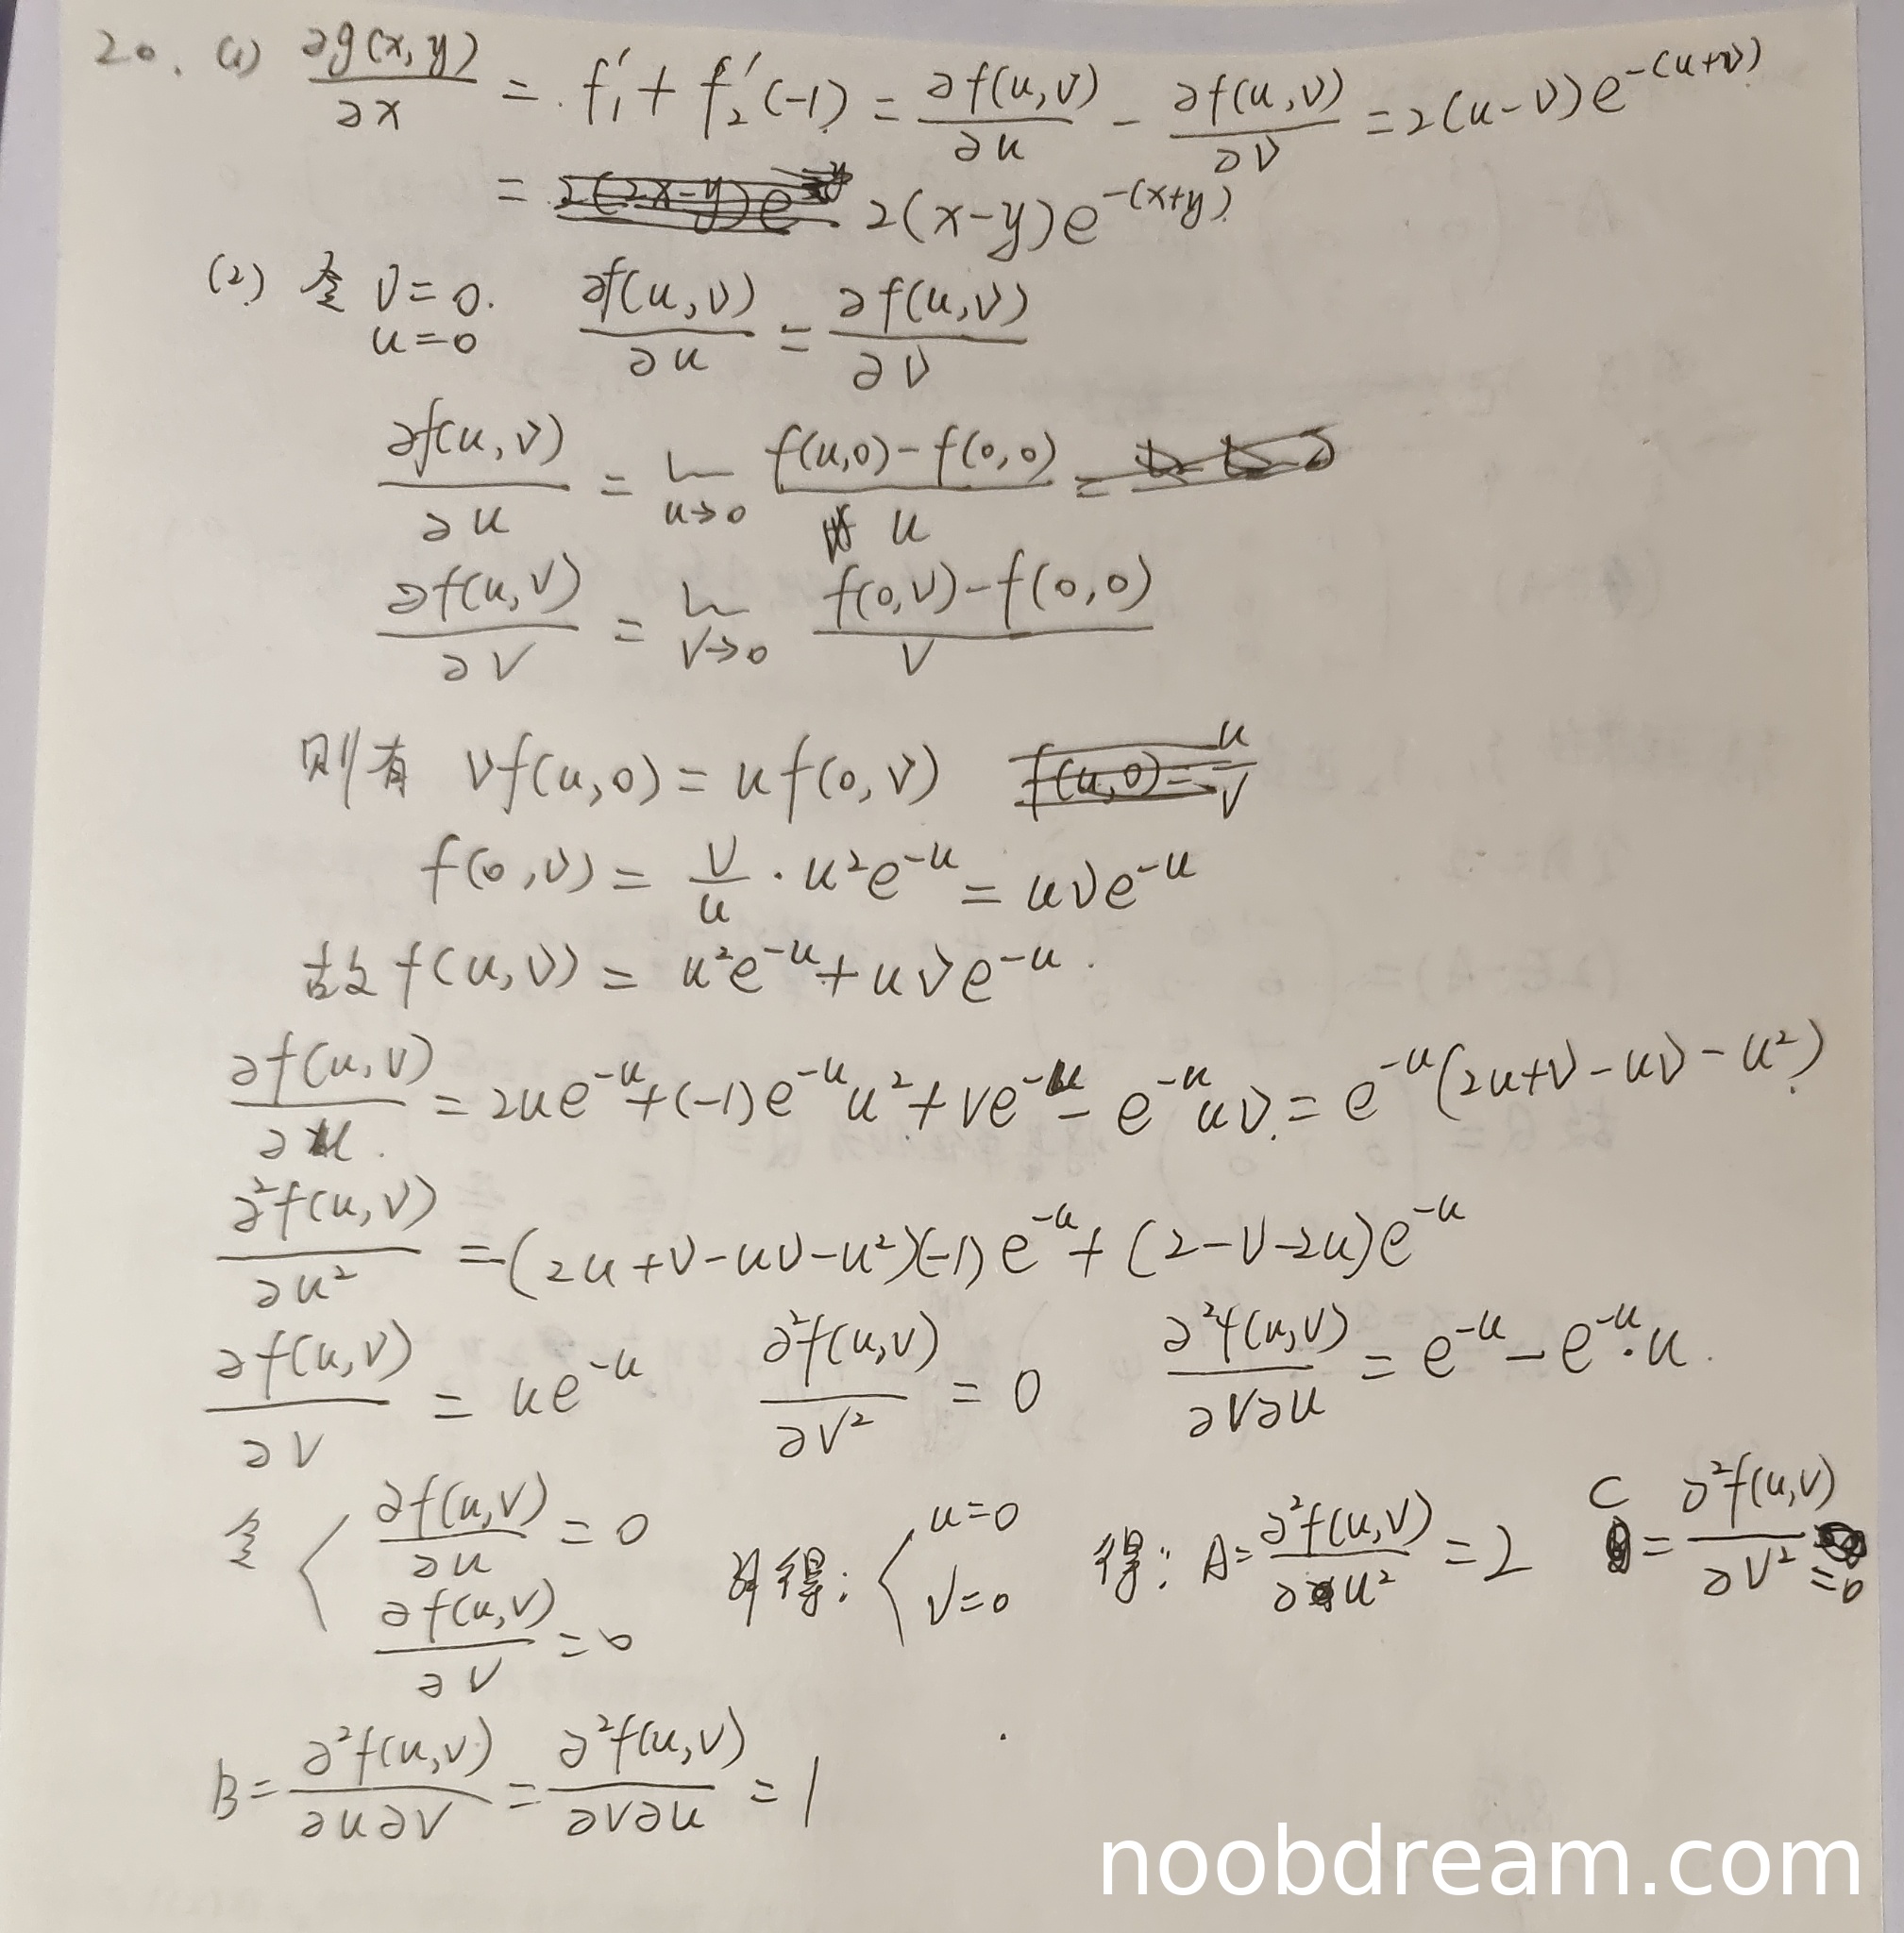 20. (1) ∂g(x,y)/∂x = f₁′ + f₂′(-1) = ∂f(u,v)/∂u - ∂f(u,v)/∂v = 2(u-v)e^{-(u+v)}
= 2(x-y)e^{-(x+y)}
(2) 令 v=0. u=0 ∂f(u,v)/∂u = ∂f(u,v)/∂v
∂f(u,v)/∂u = lim_{u→0} (f(u,0)-f(0,0))/u
∂f(u,v)/∂v = lim_{v→0} (f(0,v)-f(0,0))/v
则有 vf(u,0) = uf(0,v)
f(0,v) = v/u · u²e^{-u} = uve^{-u}
故 f(u,v) = u²e^{-u} + uve^{-u}.
∂f(u,v)/∂u = 2ue^{-u} + (-1)e^{-u}u² + ve^{-u} - e^{-u}uv = e^{-u}(2u+v-uv-u²)
∂²f(u,v)/∂u² = (2u+v-uv-u²)(-1)e^{-u} + (2-v-2u)e^{-u}
∂f(u,v)/∂v = ue^{-u} ∂²f(u,v)/∂v² = 0 ∂²f(u,v)/∂v∂u = e^{-u} - e^{-u}·u.
令 { ∂f(u,v)/∂u = 0 ∂f(u,v)/∂v = 0 得: { u=0 v=0 得: A = ∂²f(u,v)/∂u² = 2 C = ∂²f(u,v)/∂v² = 0
B = ∂²f(u,v)/∂u∂v = ∂²f(u,v)/∂v∂u = 1
noobdream.com